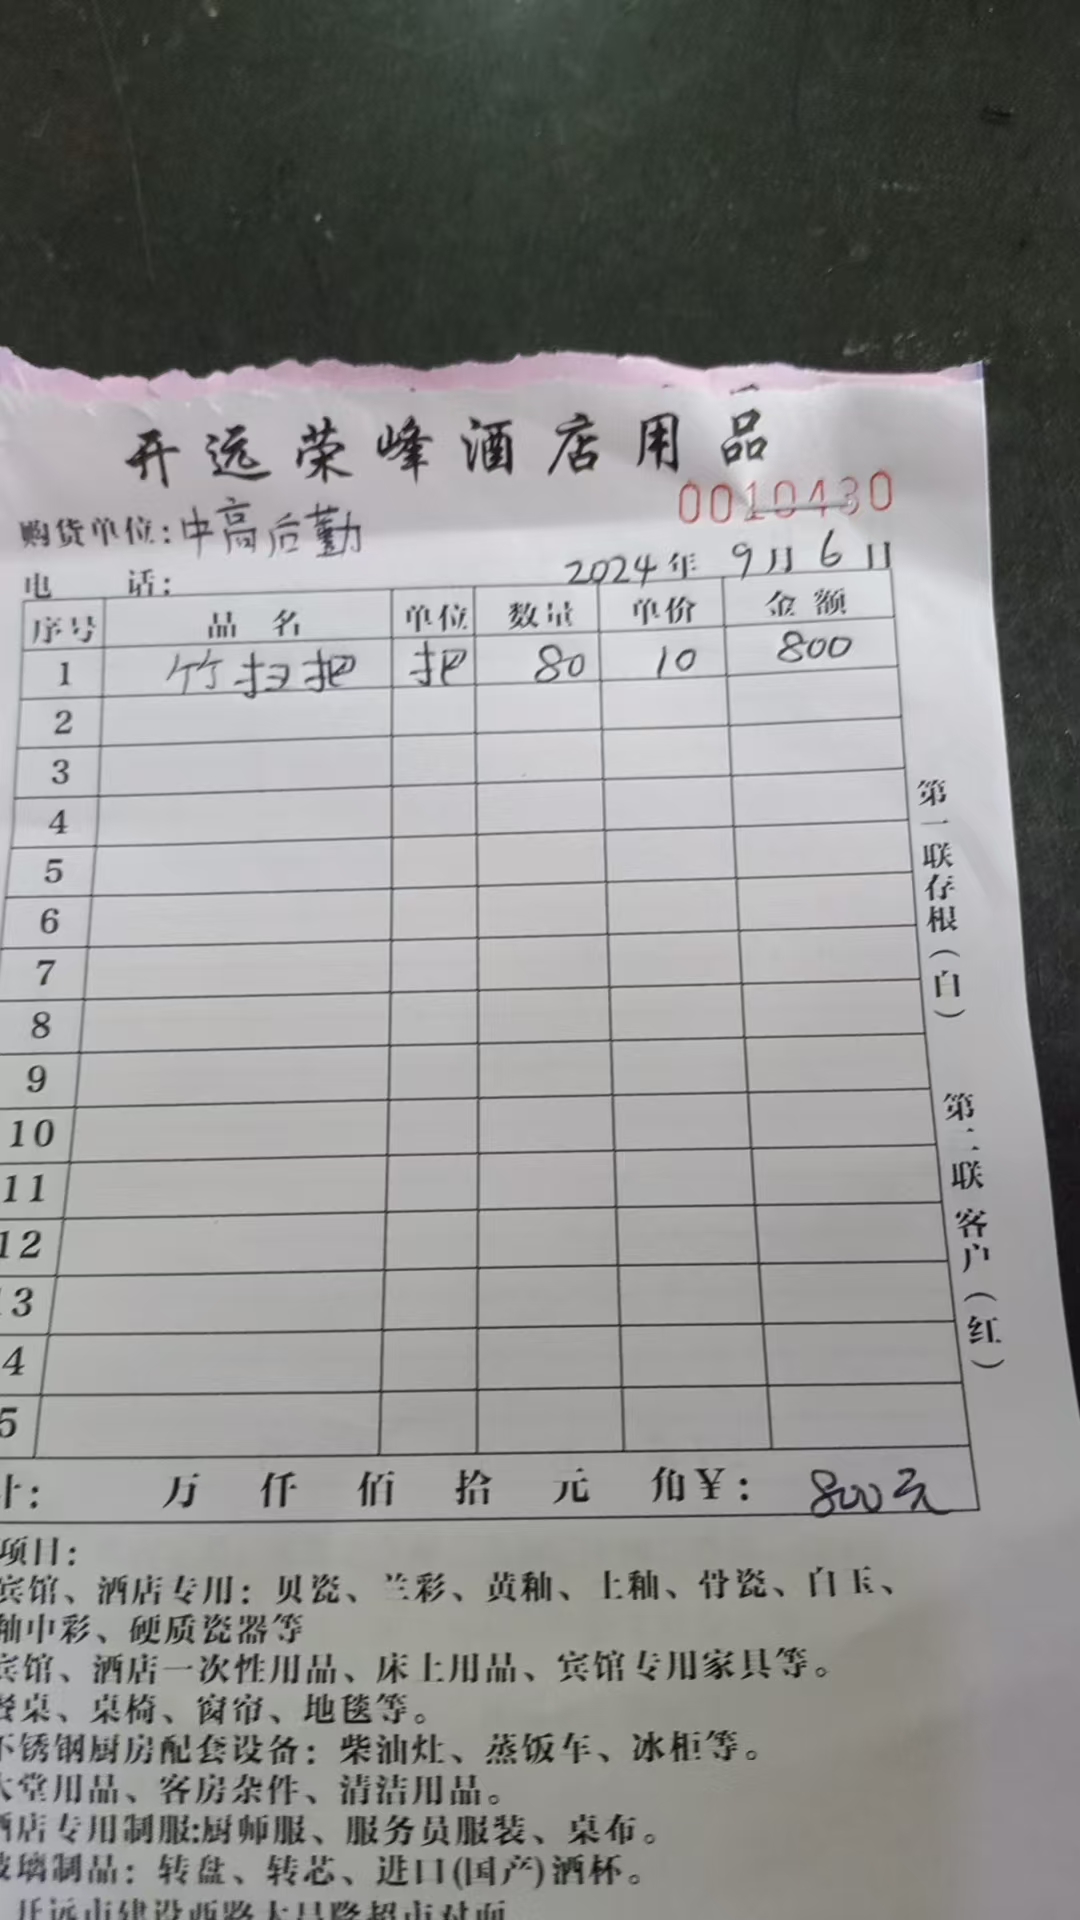 开远荣峰酒店用品
0010430
购货单位:中高后勤
电 话:
2024年 9月 6日
序号 品名 单位 数量 单价 金额
1 竹扫把 把 80 10 800
2
3
4
5
6
7
8
9
10
11
12
13
4
5
计: 万 仟 佰 拾 元 角¥: 800元
第一联存根(白)
第二联客户(红)
项目:
宾馆、酒店专用:贝瓷、兰彩、黄釉、上釉、骨瓷、白玉、
釉中彩、硬质瓷器等
宾馆、酒店一次性用品、床上用品、宾馆专用家具等。
餐桌、桌椅、窗帘、地毯等。
不锈钢厨房配套设备:柴油灶、蒸饭车、冰柜等。
大堂用品、客房杂件、清洁用品。
酒店专用制服:厨师服、服务员服装、桌布。
玻璃制品:转盘、转芯、进口(国产)酒杯。
开远市建设西路大昌隆超市对面